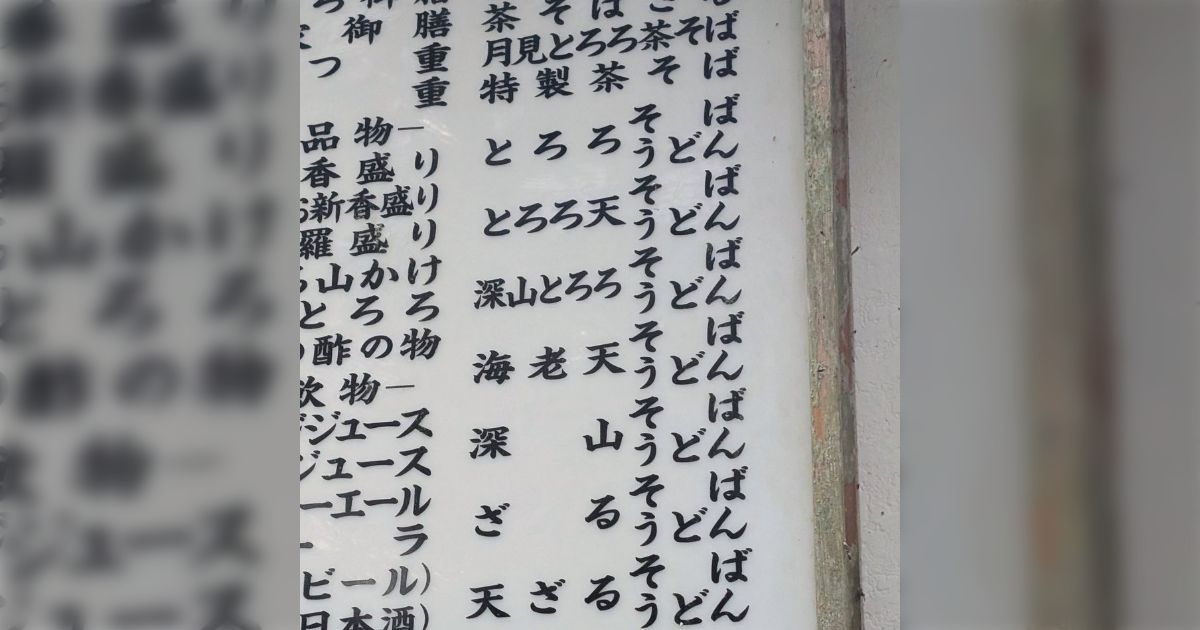 御膳
重
つ重
品物―
香盛り
新香盛り
羅盛り
山かけ
とろろ
酢の物
飲物―
ジュース
ジュース
ーエール
ーラ
ビール)
日本酒)
茶そば
月見とろろ茶そば
特製茶そば
とろろ そば
うどん
とろろ天 そば
うどん
深山とろろ そば
うどん
海老天 そば
うどん
深山 そば
うどん
ざる そば
うどん
天ざる そば
うどん